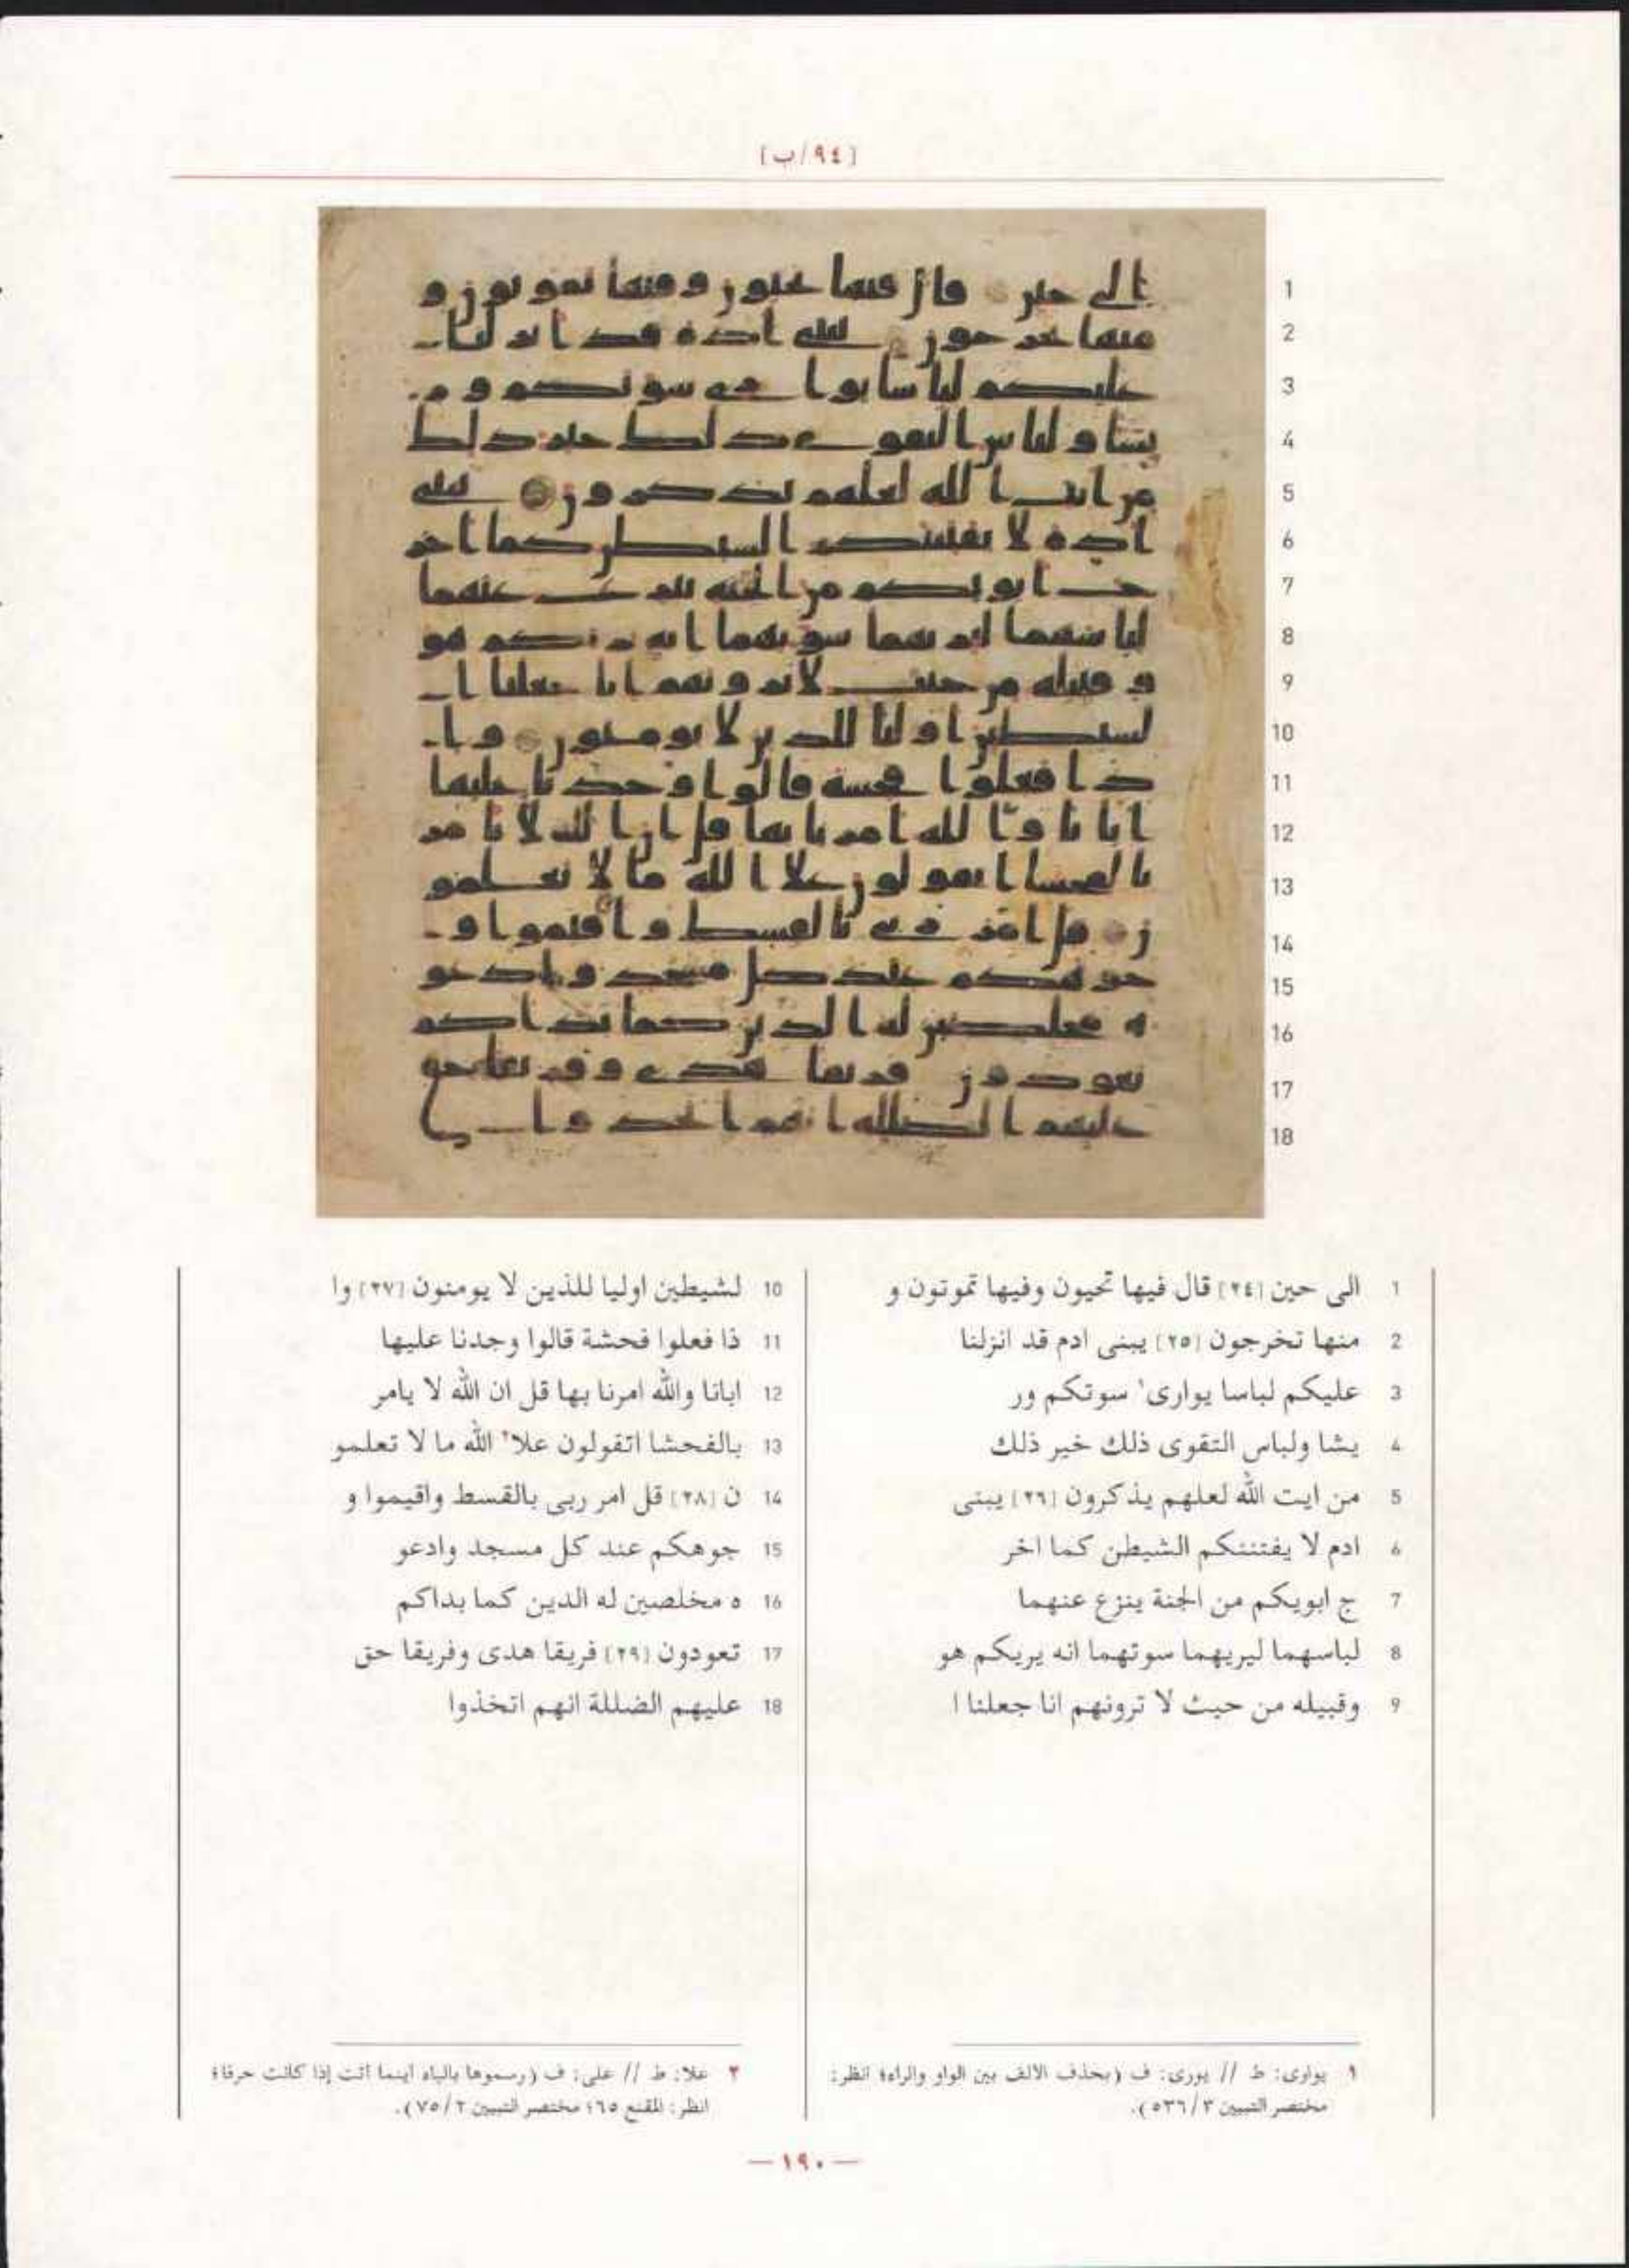 [٩٤/ب]
1 الى حين [٢٤] قال فيها تحيون وفيها تموتون و
2 منها تخرجون [٢٥] يبنى ادم قد انزلنا
3 عليكم لباسا يوارى١ سوتكم ور
4 يشا ولباس التقوى ذلك خير ذلك
5 من ايت الله لعلهم يذكرون [٢٦] يبنى
6 ادم لا يفتننكم الشيطن كما اخر
7 ج ابويكم من الجنة ينزع عنهما
8 لباسهما ليريهما سوتهما انه يريكم هو
9 وقبيله من حيث لا ترونهم انا جعلنا ا
10 لشيطين اوليا للذين لا يومنون [٢٧] وا
11 ذا فعلوا فحشة قالوا وجدنا عليها
12 ابانا والله امرنا بها قل ان الله لا يامر
13 بالفحشا اتقولون علا٢ الله ما لا تعلمو
14 ن [٢٨] قل امر ربى بالقسط واقيموا و
15 جوهكم عند كل مسجد وادعو
16 ه مخلصين له الدين كما بداكم
17 تعودون [٢٩] فريقا هدى وفريقا حق
18 عليهم الضللة انهم اتخذوا
١ يوارى: ط // يورى: ف (بحذف الالف بين الواو والراء؛ انظر:
مختصر التبيين ٣/ ٥٣٦).
٢ علا: ط // على: ف (رسموها بالياء اينما اتت إذا كانت حرفا؛
انظر: المقنع ٦٥؛ مختصر التبيين ٢/ ٧٥).
— ١٩٠ —